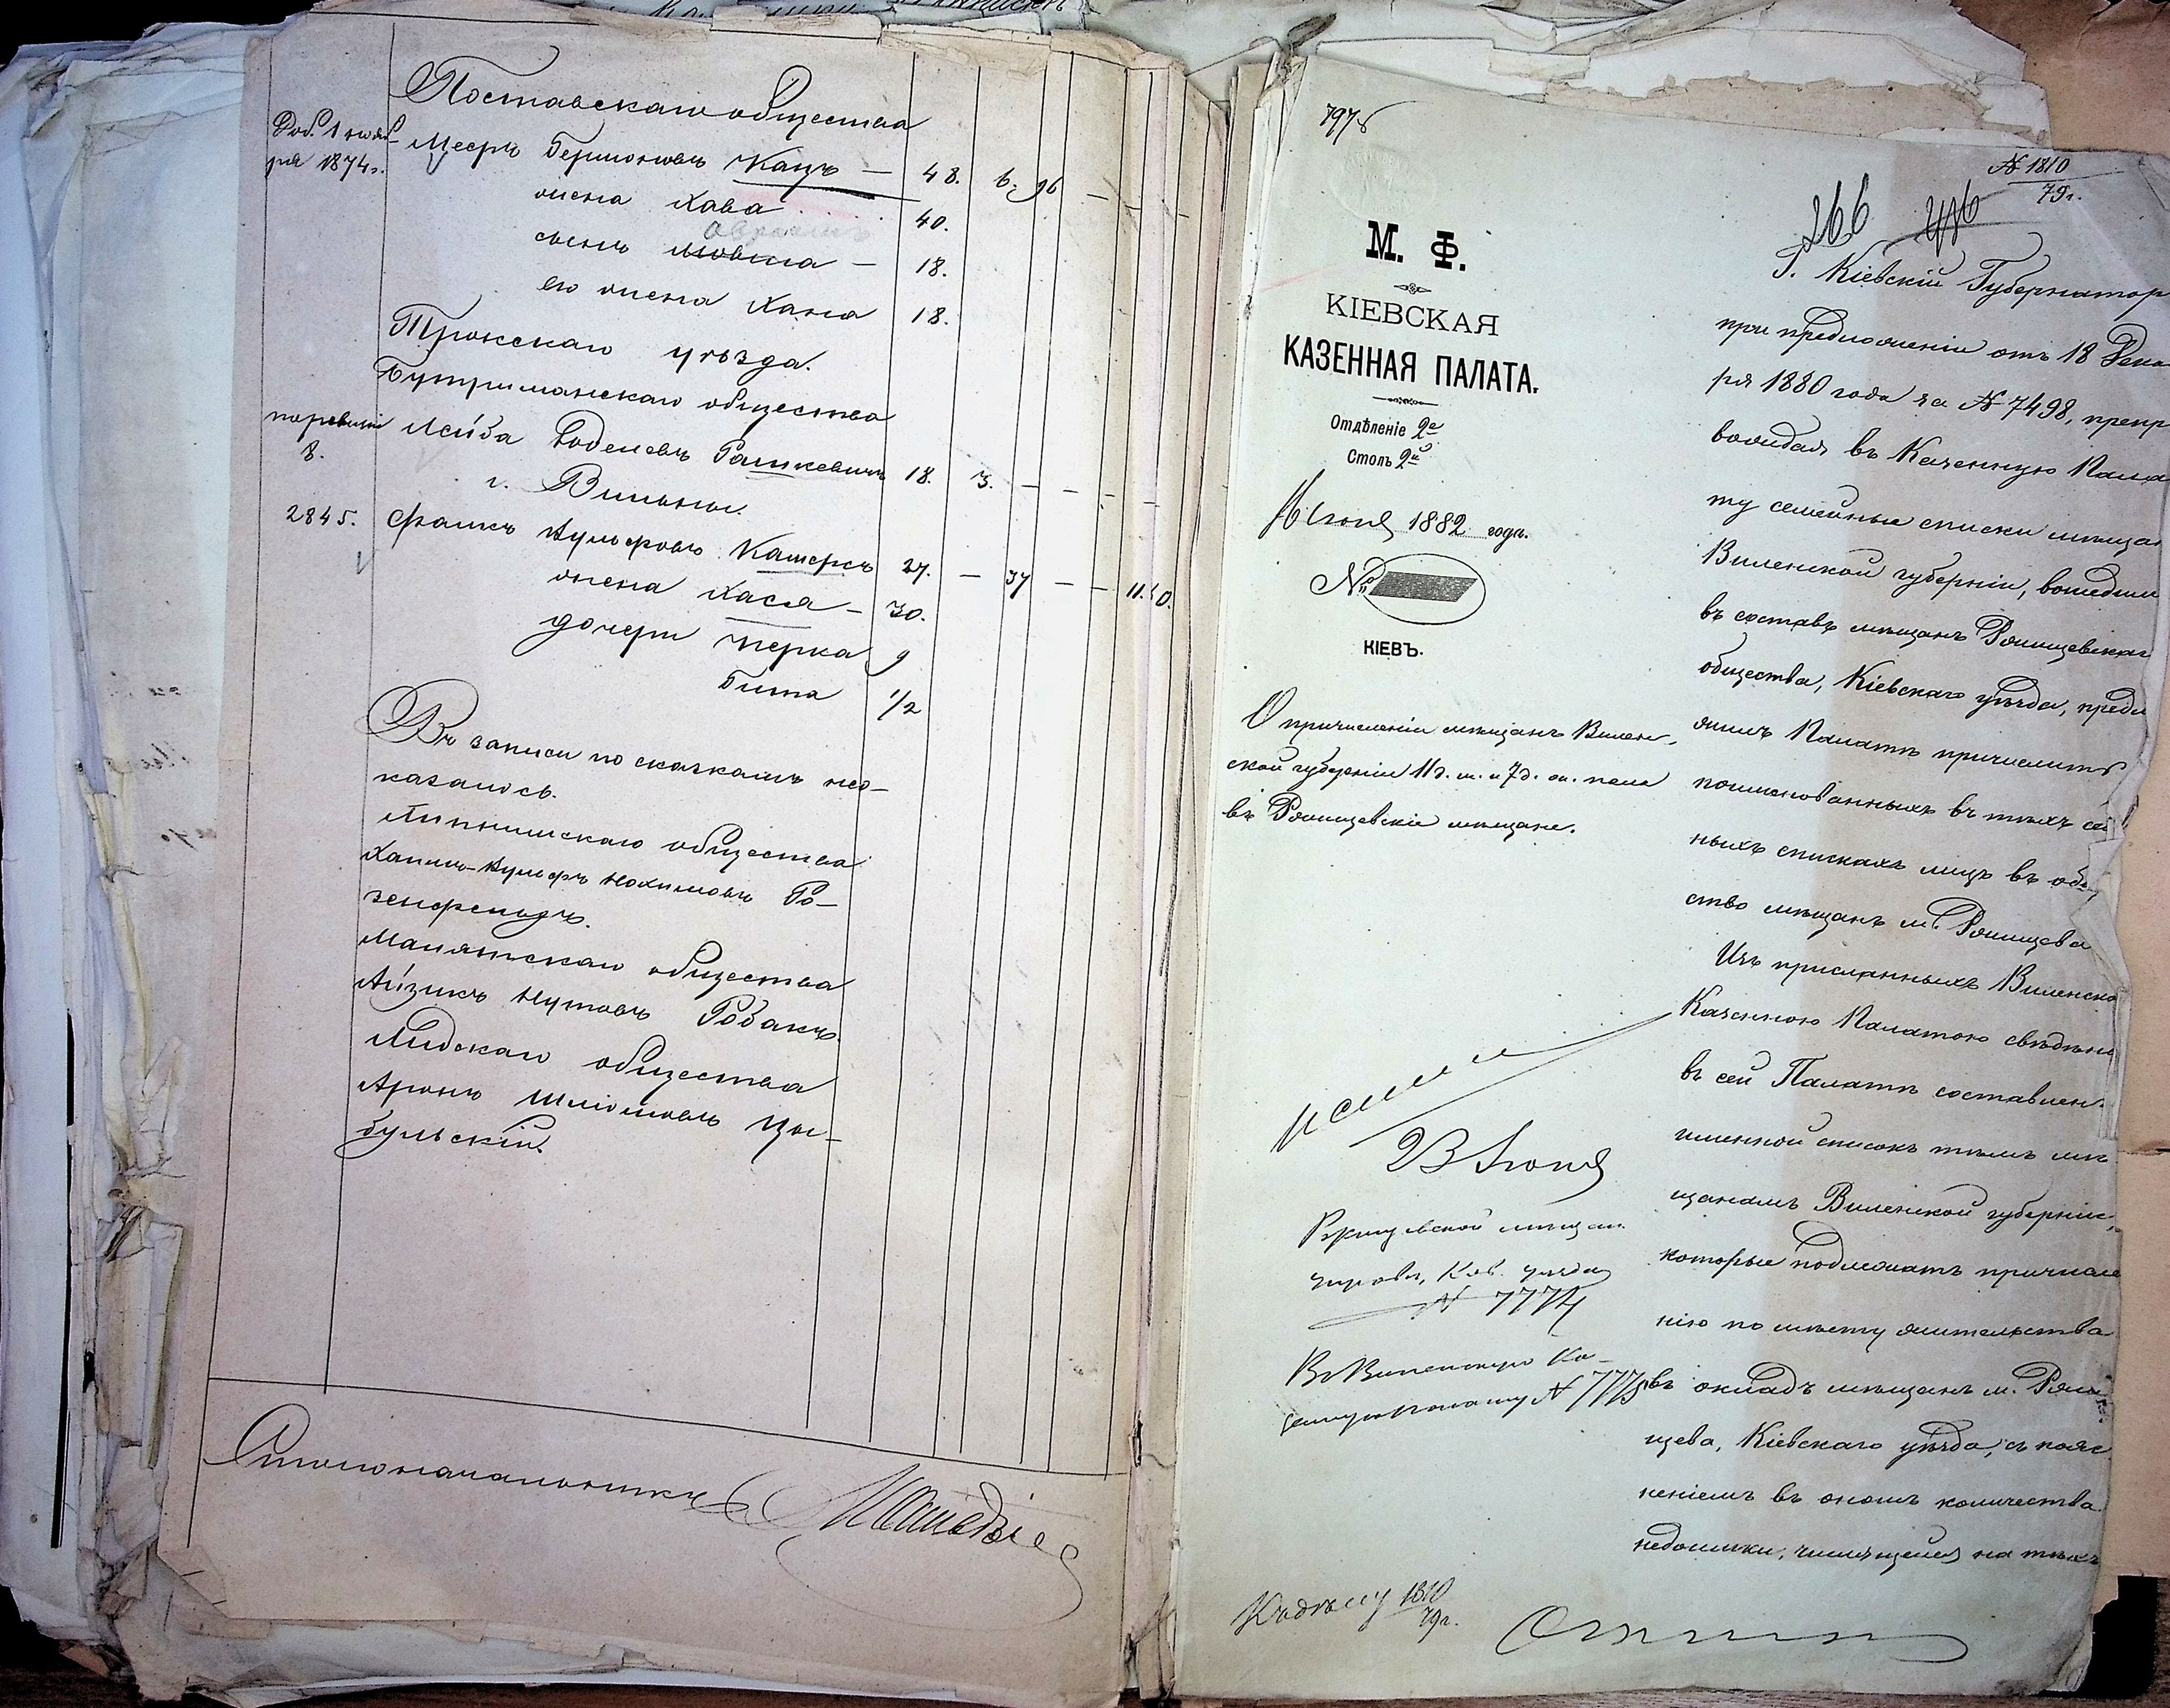 Поставскаго общества
Доб. 1 нояб-
ря 1874 г.
Мееръ Берконовъ Кацъ — 48. 6. 96 — —
жена Хава 40.
сынъ — 18.
его жена Хана 18.
Трокскаго уѣзда.
Бутриманскаго общества
по ревизіи
8.
Лейба Рашкевичъ 18. 3. — — — —
г. Вильны.
2845. Вульфовъ 27. — 37 — — 11.50.
жена Хася — 30.
дочери Черка 9
Бита 1/2
Въ записи по сказкамъ не о-
казалось.
Липнишскаго общества
Хаимъ-Вульфъ Нохимовъ Ро-
зенфельдъ.
Малятскаго общества
Айзикъ Нутовъ Робакъ.
Лидскаго общества
Аронъ Шліомовъ Цы-
бульскій.
Столоначальникъ
7975
М. Ф.
КІЕВСКАЯ
КАЗЕННАЯ ПАЛАТА.
Отдѣленіе 2е
Столъ 2й
16 Іюня 1882 года.
№
КІЕВЪ.
О причисленіи мѣщанъ Вилен-
ской губерніи 11 д. м. и 7 д. ж. пола
въ Ржищевскіе мѣщане.
23 Іюня
Ржищевской мѣщан.
управѣ, Кіев. уѣзда
№ 7774
Въ Виленскую Ка-
зенную палату № 7775
Къ дѣлу 1810
79 г.
№ 1810
79 г.
266
Г. Кіевскій Губернатор
при предложеніи отъ 18 Дека
ря 1880 года за № 7498, препр
вождая въ Казенную Пала
ту семейные списки мѣщан
Виленской губерніи, вошедши
въ составъ мѣщанъ Ржищевскаг
общества, Кіевскаго уѣзда, предл
жилъ Палатѣ причислить
поименованныхъ въ тѣхъ се
ныхъ спискахъ лицъ въ обще
ство мѣщанъ м. Ржищева
Изъ присланныхъ Виленско
Казенною Палатою свѣдѣні
въ сей Палатѣ составлен.
именной списокъ тѣмъ мѣ
щанамъ Виленской губерніи,
которые подлежатъ причисле
нію по мѣсту жительства
въ окладъ мѣщанъ м. Ржи
щева, Кіевскаго уѣзда, съ пояс
неніемъ въ ономъ количества
недоимки, числящейся на тѣхъ